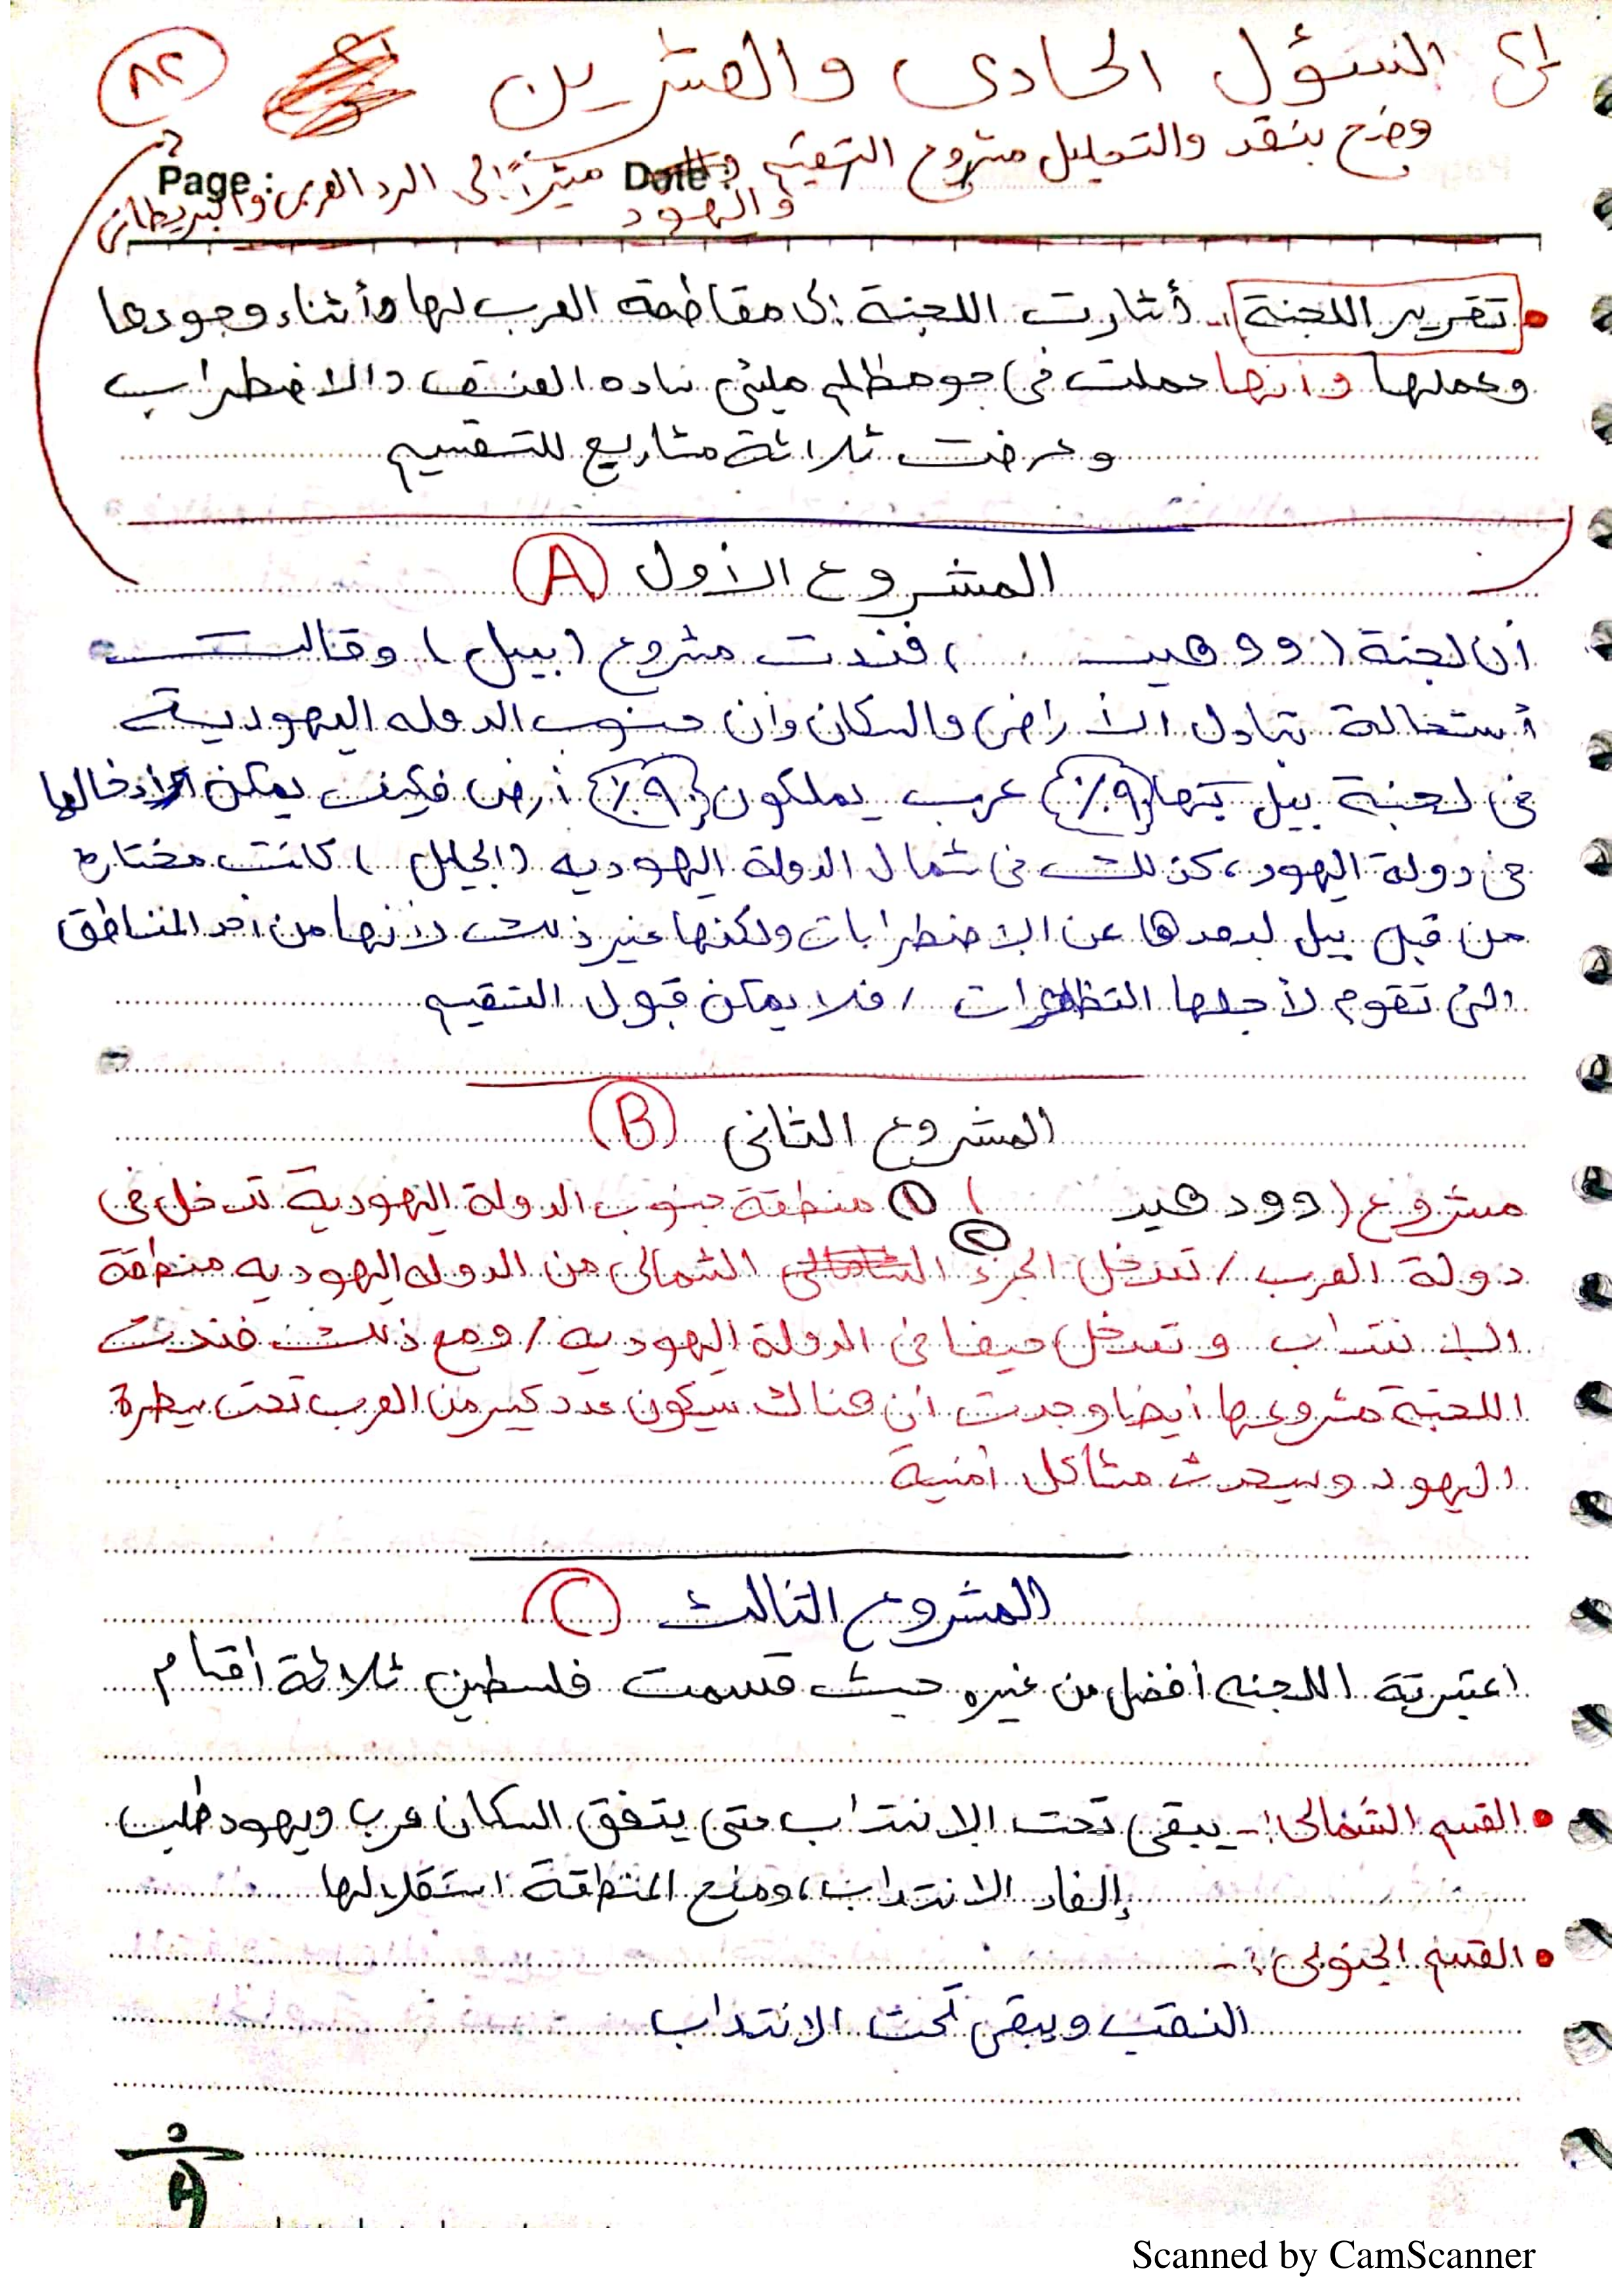 السؤل الحادى والعشرين
٨٢
وضح بنقد والتحليل مشروع التقسيم مشيراً إلى الرد العربى والبريطانى
واليهود
Page : Date :
تقرير اللجنة :- أشارت اللجنة إلى مقاطعة العرب لها وأثناء وجودها
وعملها وأنها عملت فى جو مظلم ملئى سادة العنف والاضطراب
وعرضت ثلاثة مشاريع للتقسيم
المشروع الأول A
أن لجنة (وودهيد ) فندت مشروع (بيل) وقالت
أستحالة تبادل الأراضى والسكان وأن جنوب الدوله اليهودية
فى لجنة بيل كتبها (٩٠٪) عرب يملكون (٩٠٪) أرض فكيف يمكن ادخالها
فى دولة اليهود، كذلك فى شمال الدولة اليهوديه (الجليل) كانت مختارة
من قبل بيل لبعدها عن الاضطرابات ولكنها غير ذلك لأنها من أحد المناطق
التى تقوم لأجلها التظاهرات / فلا يمكن قبول التقيم
المشروع الثانى B
مشروع (وودهيد ) ١ منطقة جنوب الدولة اليهودية تدخل فى
دولة العرب / ٢ تدخل الجزء الشمالى من الدوله اليهوديه منطقة
الانتداب وتدخل حيفا فى الدولة اليهوديه / ومع ذلك فندت
اللجنة مشروعها أيضا وجدت أن هناك سيكون عدد كبير من العرب تحت سيطرة
اليهود وسيحدث مشاكل أمنية
المشروع الثالث C
اعتبرتة اللجنه أفضل من غيره حيث قسمت فلسطين ثلاثة أقسام
القسم الشمالى :- يبقى تحت الانتداب حتى يتفق السكان عرب ويهود طلب
إلغاء الانتداب، ومنح المنطقة استقلالها
القسم الجنوبى :-
النقب ويبقى تحت الانتداب
Scanned by CamScanner